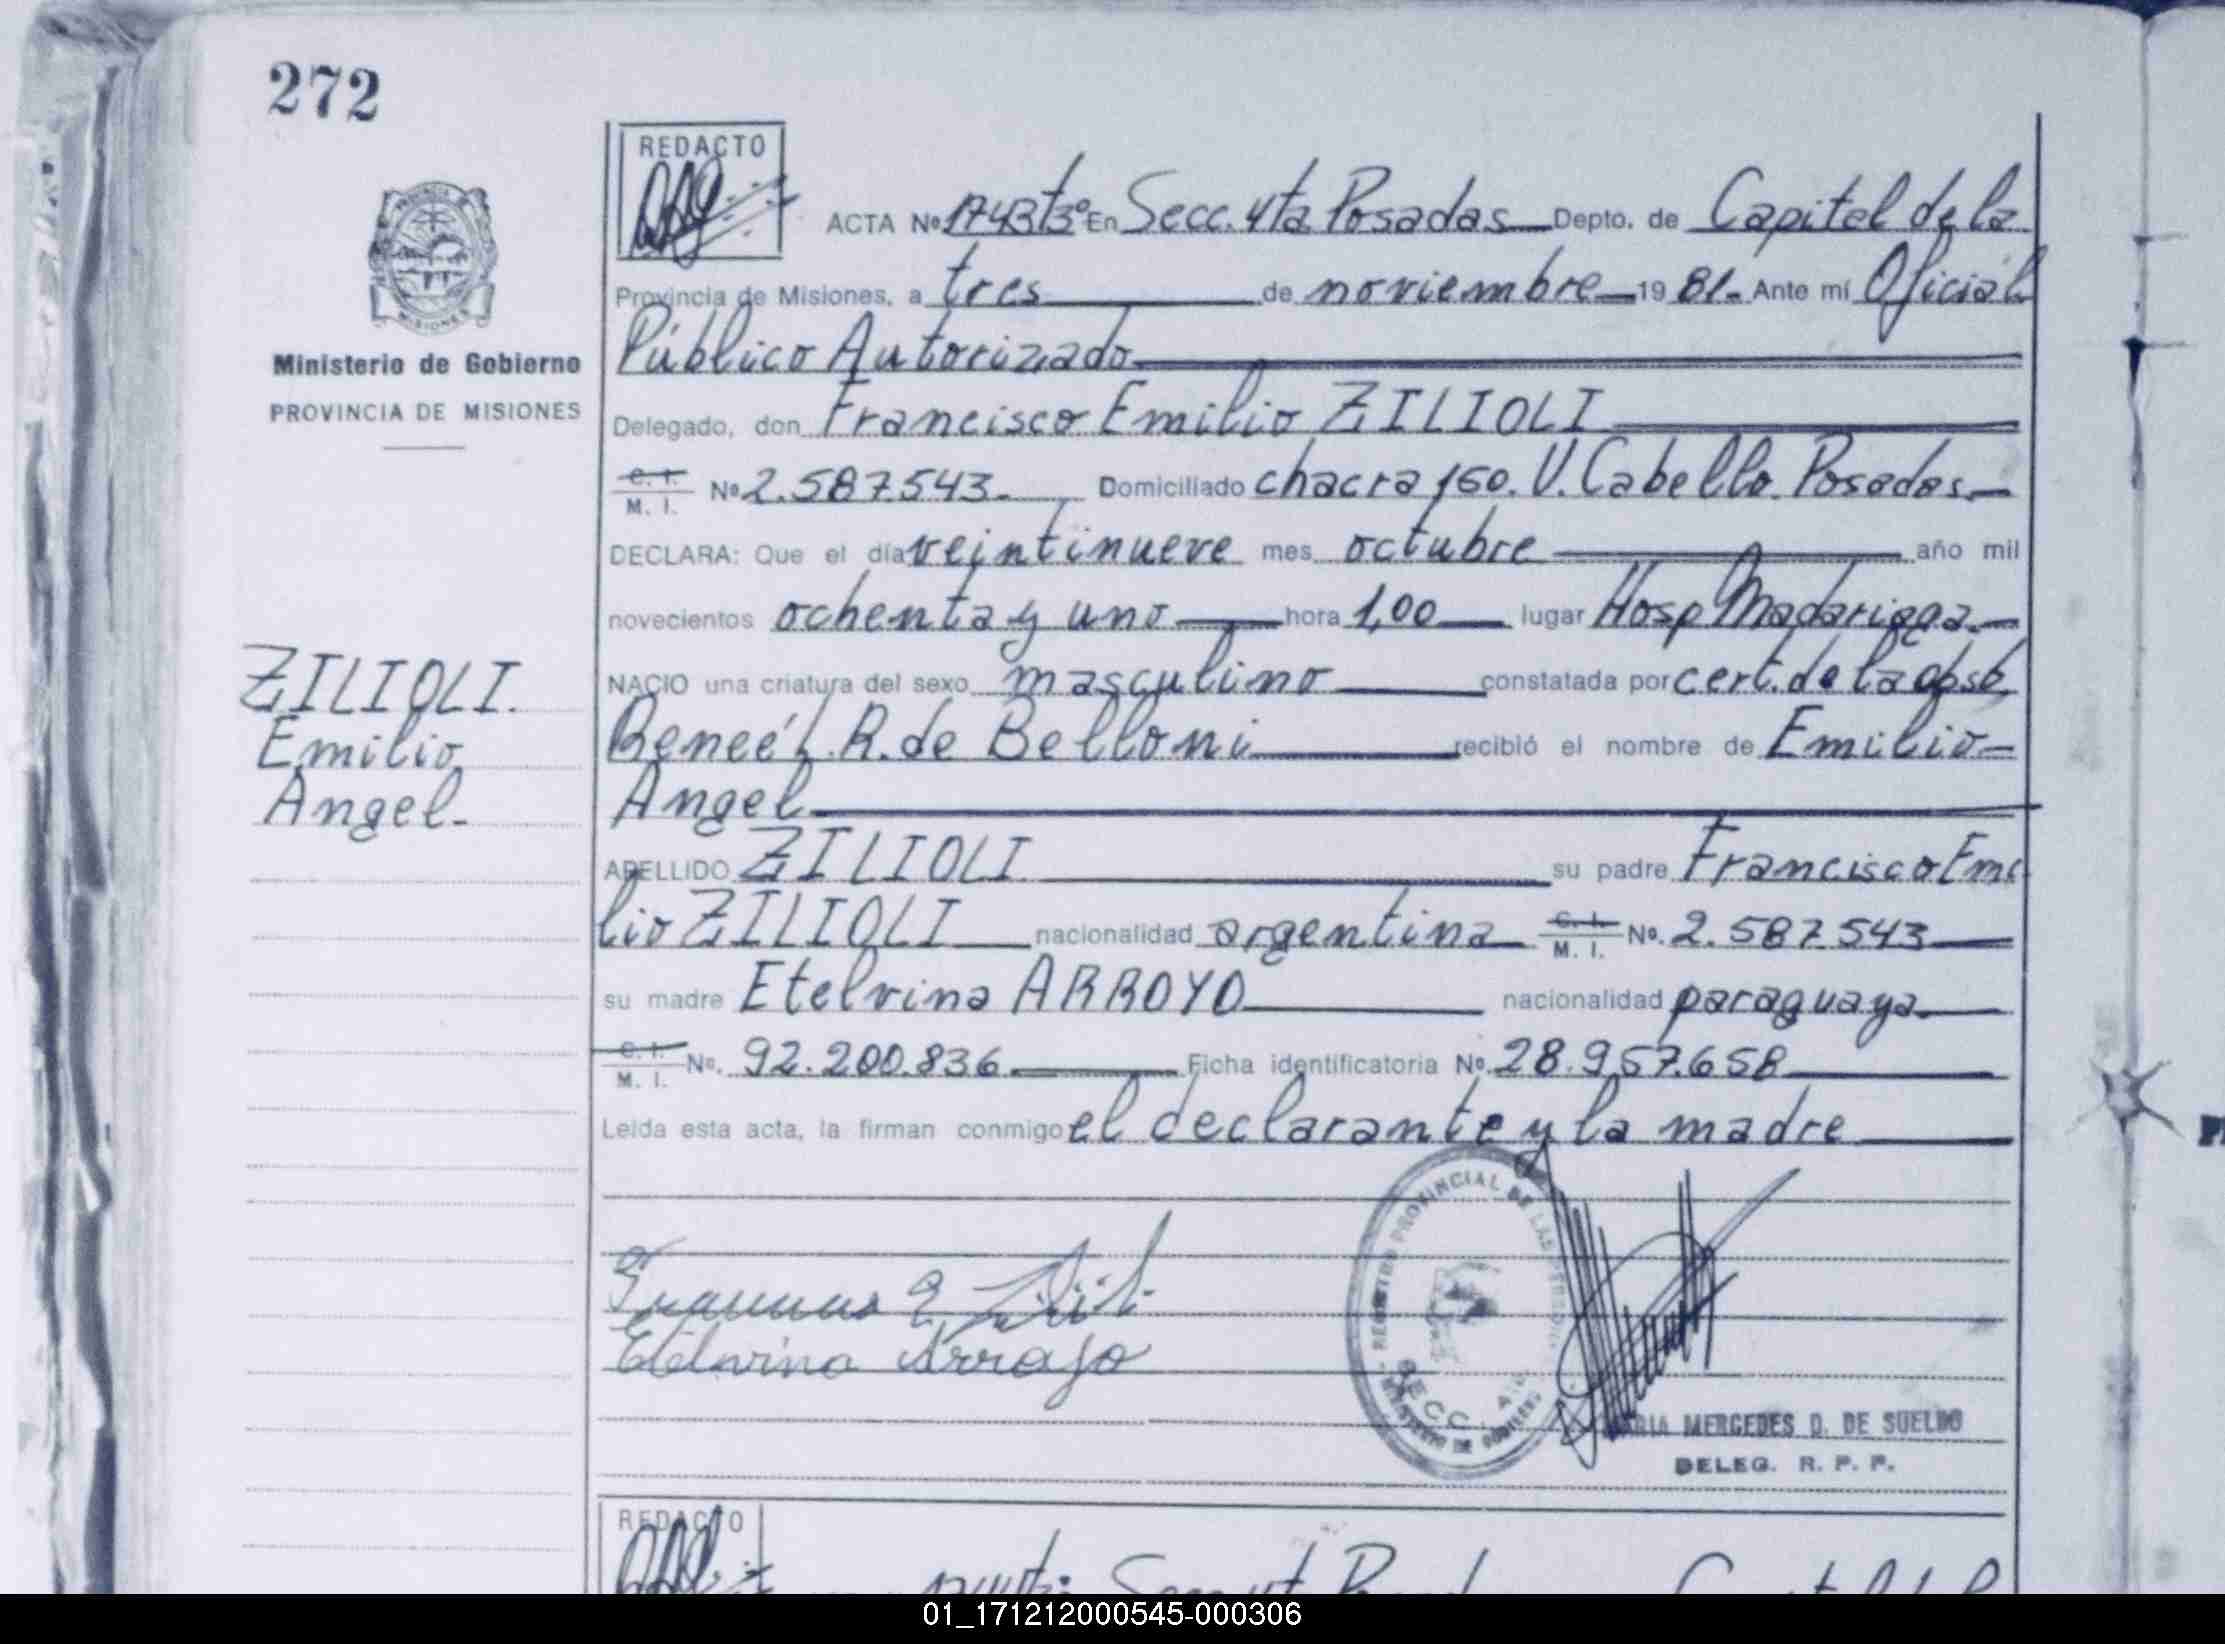 272
REDACTO
ACTA Nº 1743 tº 3º En Secc. 4ta Posadas Depto. de Capital de la
Provincia de Misiones, a tres de noviembre 19 81.- Ante mí Oficial
Público Autorizado
Delegado, don Francisco Emilio ZILIOLI
C. I. M. I. Nº 2.587.543. Domiciliado chacra 150. V. Cabello. Posadas.
DECLARA: Que el día veintinueve mes octubre año mil
novecientos ochenta y uno hora 1,00 lugar Hosp Madariaga.
NACIO una criatura del sexo masculino constatada por cert. de la obst.
Reneé L. R. de Belloni recibió el nombre de Emilio
Angel
APELLIDO ZILIOLI su padre Francisco Emi
lio ZILIOLI nacionalidad argentina C. I. M. I. Nº. 2.587.543
su madre Etelvina ARROYO nacionalidad paraguaya.
C. I. M. I. Nº. 92.200.836 Ficha identificatoria Nº. 28.957.658
Leida esta acta, la firman conmigo el declarante y la madre
PROVINCIA
MISIONES
Ministerio de Gobierno
PROVINCIA DE MISIONES
ZILIOLI.
Emilio
Angel.
Etelvina Arrojo
REGISTRO PROVINCIAL DE LAS
SECC.
MINISTERIO DE GOBIERNO
MARIA MERCEDES D. DE SUELDO
DELEG. R. P. P.
REDACTO
01_171212000545-000306